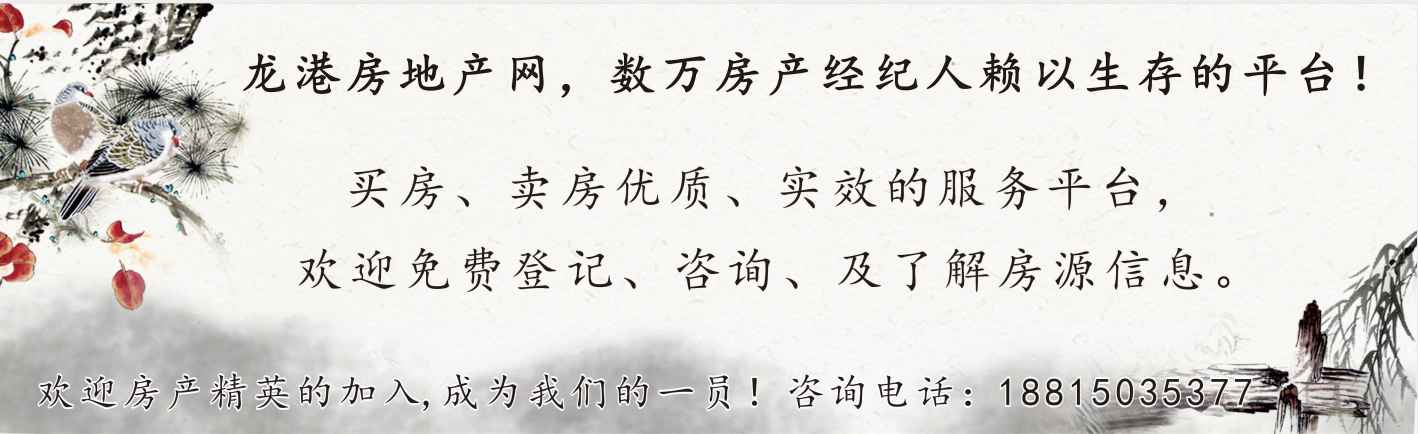 龙港房地产网，数万房产经纪人赖以生存的平台！
买房、卖房优质、实效的服务平台，
欢迎免费登记、咨询、及了解房源信息。
欢迎房产精英的加入,成为我们的一员！咨询电话：18815035377